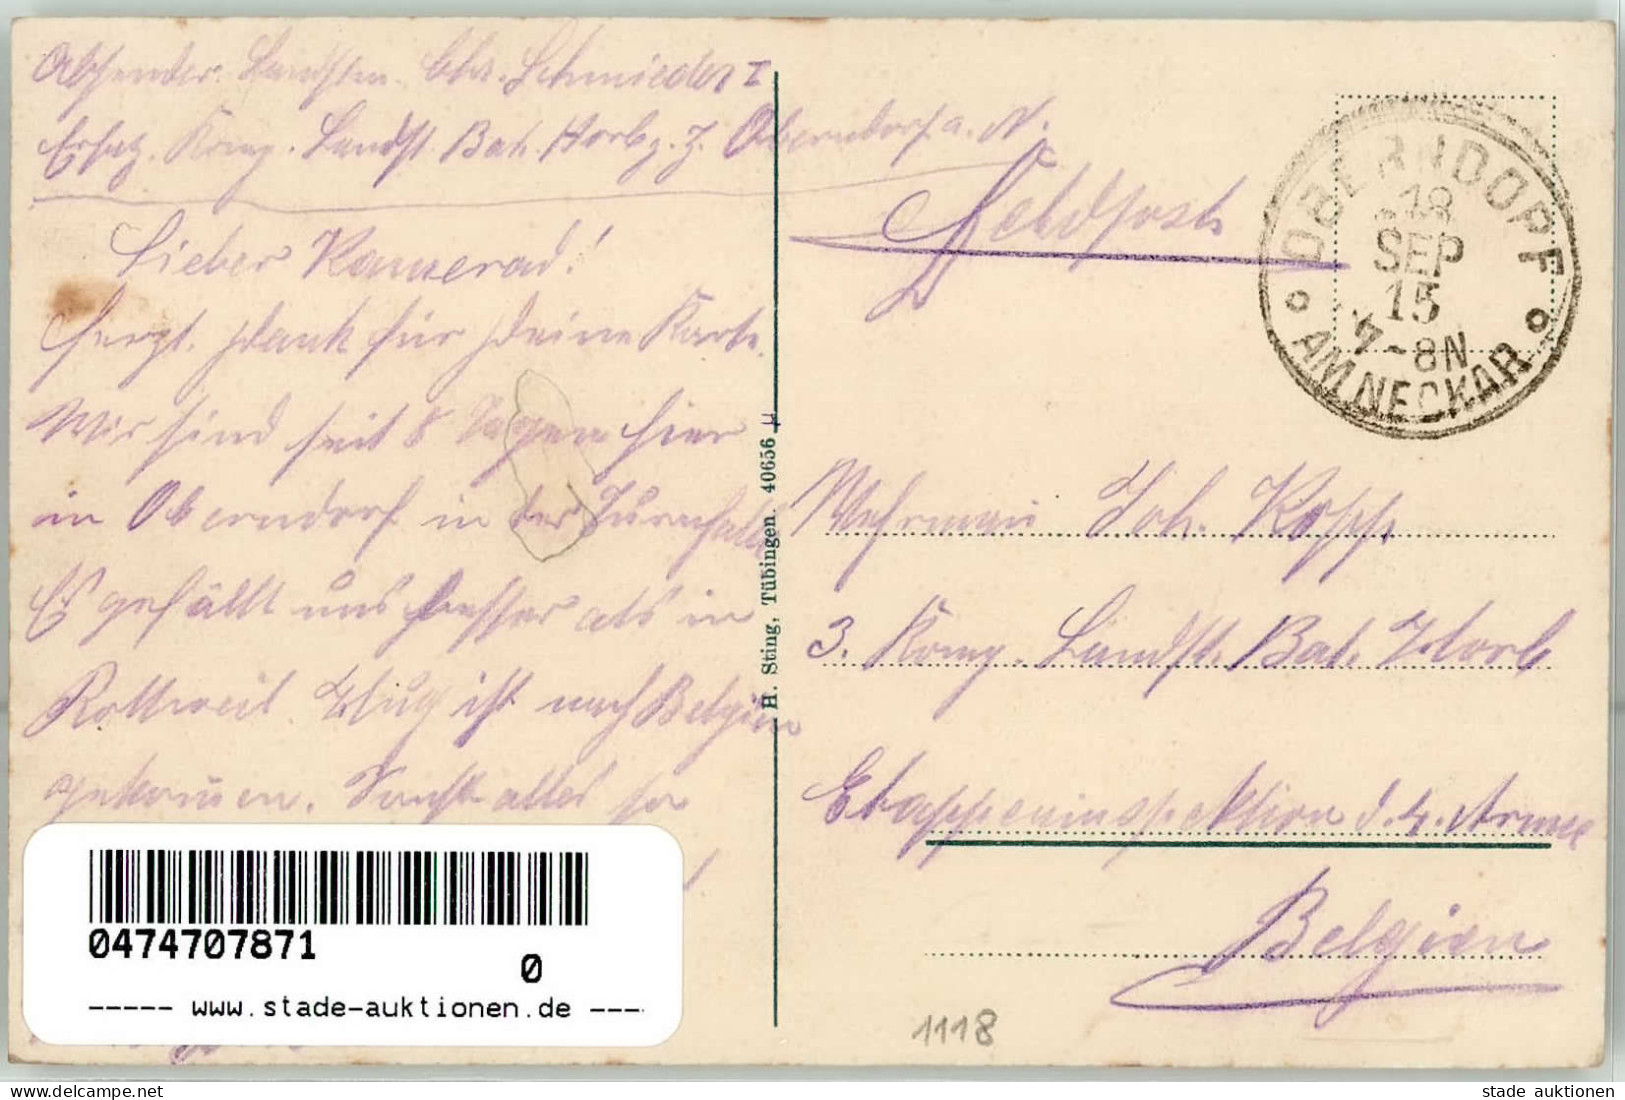 Absender: Landstm. Chr. Schmieder I
Ersatz. Komp. Landst. Bat. Horb z. Z. Oberndorf a. N.
Feldpost
OBERNDORF
18
SEP
15
7-8N
AM NECKAR
Lieber Kamerad!
Herzl. Dank für Deine Karte.
Wir sind seit 8 Tagen hier
in Oberndorf in der Turnhalle
Es gefällt uns besser als in
Rottweil. Klug ist nach Belgien
gekommen. Sonst alles so
H. Sting, Tübingen. 40656
Wehrmann Joh. Kopp
3. Komp. Landst. Bat. Horb
Etappeninspektion d. 4. Armee
Belgien
1118
0474707871
0
----- www.stade-auktionen.de ---
www.delcampe.net
stade auktionen